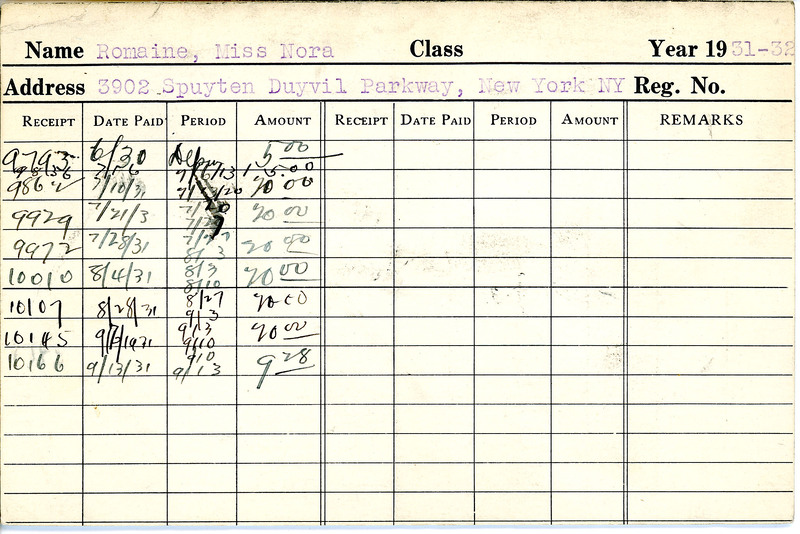 Name Romaine, Miss Nora Class Year 1931-32
Address 3902 Spuyten Duyvil Parkway, New York NY Reg. No.
RECEIPT DATE PAID PERIOD AMOUNT RECEIPT DATE PAID PERIOD AMOUNT REMARKS
9793 6/30 5 00
7/6/13 15.00
9862 7/10/31 20 00
7/20
9929 7/21/3 20 00
7/27
9972 7/28/31 20 00
8/3
10010 8/4/31 8/3 20 00
8/10
10107 8/28/31 8/27 20 00
9/3
10145 9/3 20 00
9/10
10166 9/13/31 9/10 9 28
9/13